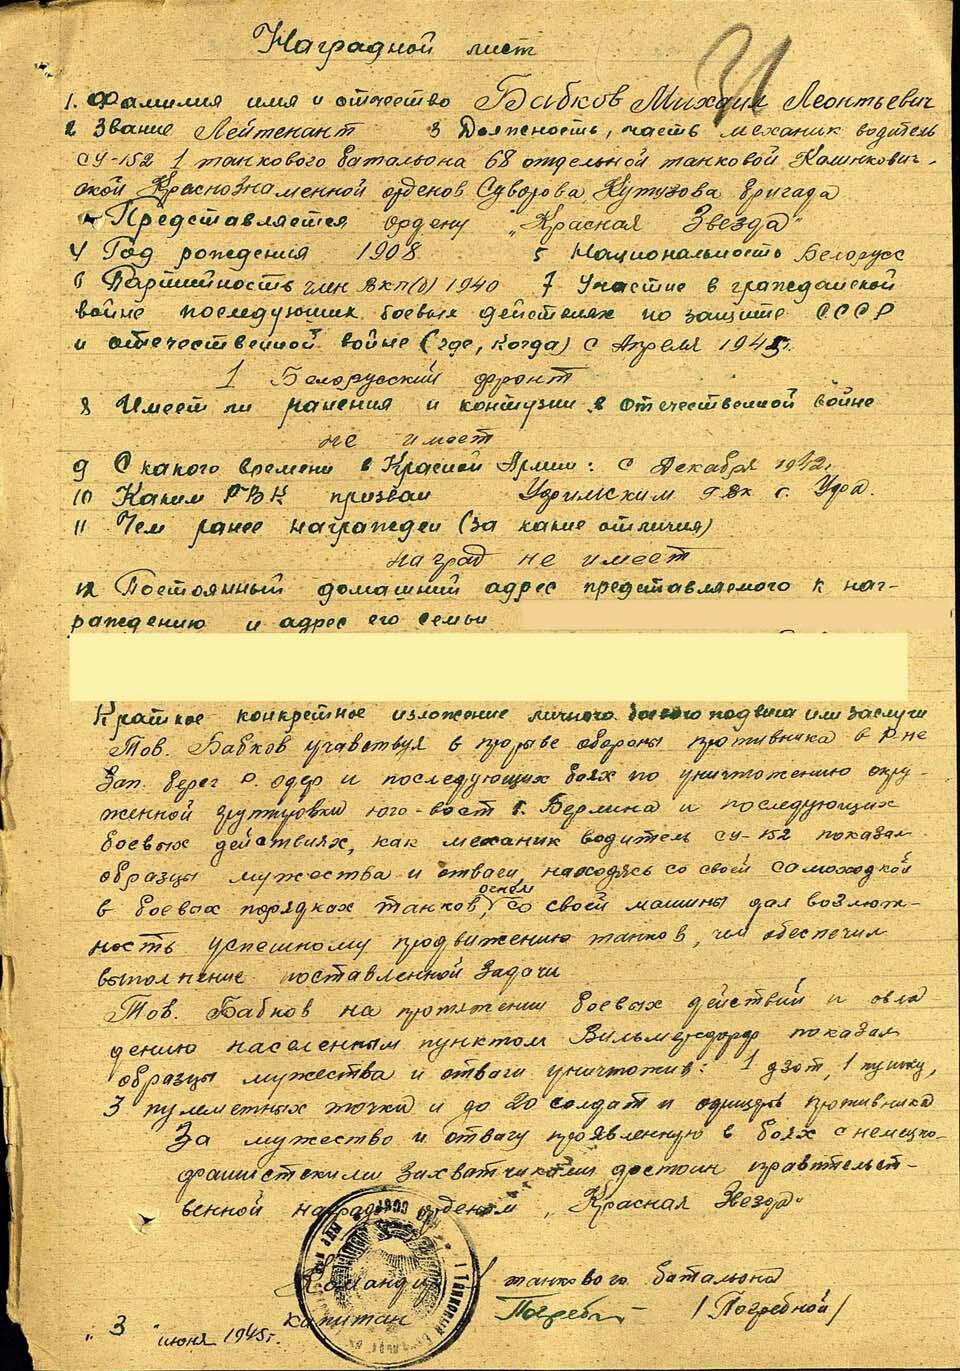 Наградной лист
1. Фамилия имя и отчество Бабков Михаил Леонтьевич
2 Звание Лейтенант 3 Должность, часть механик водитель
СУ-152 1 танкового батальона 68 отдельной танковой Калинкович-
ской Краснознаменной орденов Суворова, Кутузова бригада
Представляется ордену "Красная Звезда"
4 Год рождения 1908 5 Национальность Белорусс
6 Партийность член ВКП(б) 1940 7 Участие в гражданской
войне последующик боевых действиях по защите СССР
и отечественной войне (где, когда) с Апреля 1945г.
1 Белорусский фронт
8 Имеет ли ранения и контузии в отечественной войне
не имеет
9 С какого времени в Красной Армии: с Декабря 1942г
10 Каким РВК призван г. Уфа.
11 Чем ранее награжден (за какие отличия)
наград не имеет
12 Постоянный домашний адрес представляемого к наг-
раждению и адрес его семьи
Краткое конкретное изложение личного боевого подвига или заслуги
Тов. Бабков учавствуя в прорыве обороны противника в р-не
Зап. берег р. Одер и последующих боях по уничтожению окру-
женной групировки юго-вост г. Берлина и последующих
боевых действиях, как механик водитель СУ-152 показал
образцы мужества и отваги, находясь со своей самоходкой
в боевах порядках танков, огнем со своей машины дал возмож-
ность успешному продвижению танков, чем обеспечил
выполнение поставленной задачи
Тов. Бабков на протяжении боевых действий и овла
дению населенным пунктом показал
образцы мужества и отваги уничтожив: 1 дзот, 1 пушку,
3 пулеметных точки и до 20 солдат и офицеров противника
За мужество и отвагу проявленную в боях с немецко-
фашистскими захватчиками достоин правительст-
венной награды орденом "Красная Звезда"
Командир 1 танкового батальона
капитан Погребн /Погребной/
"3" июня 1945г.